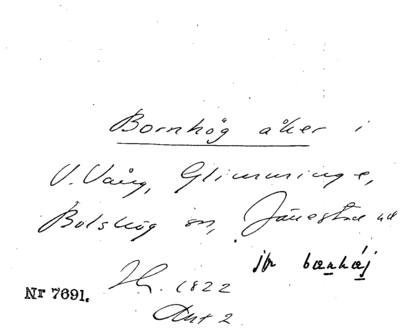 Bornhög åker i
V. Vång, Glimminge,
Bolshög sn, Järrestad hd
jfr bänhåj
Nr 7691.
Hr. 1822
Akt 2